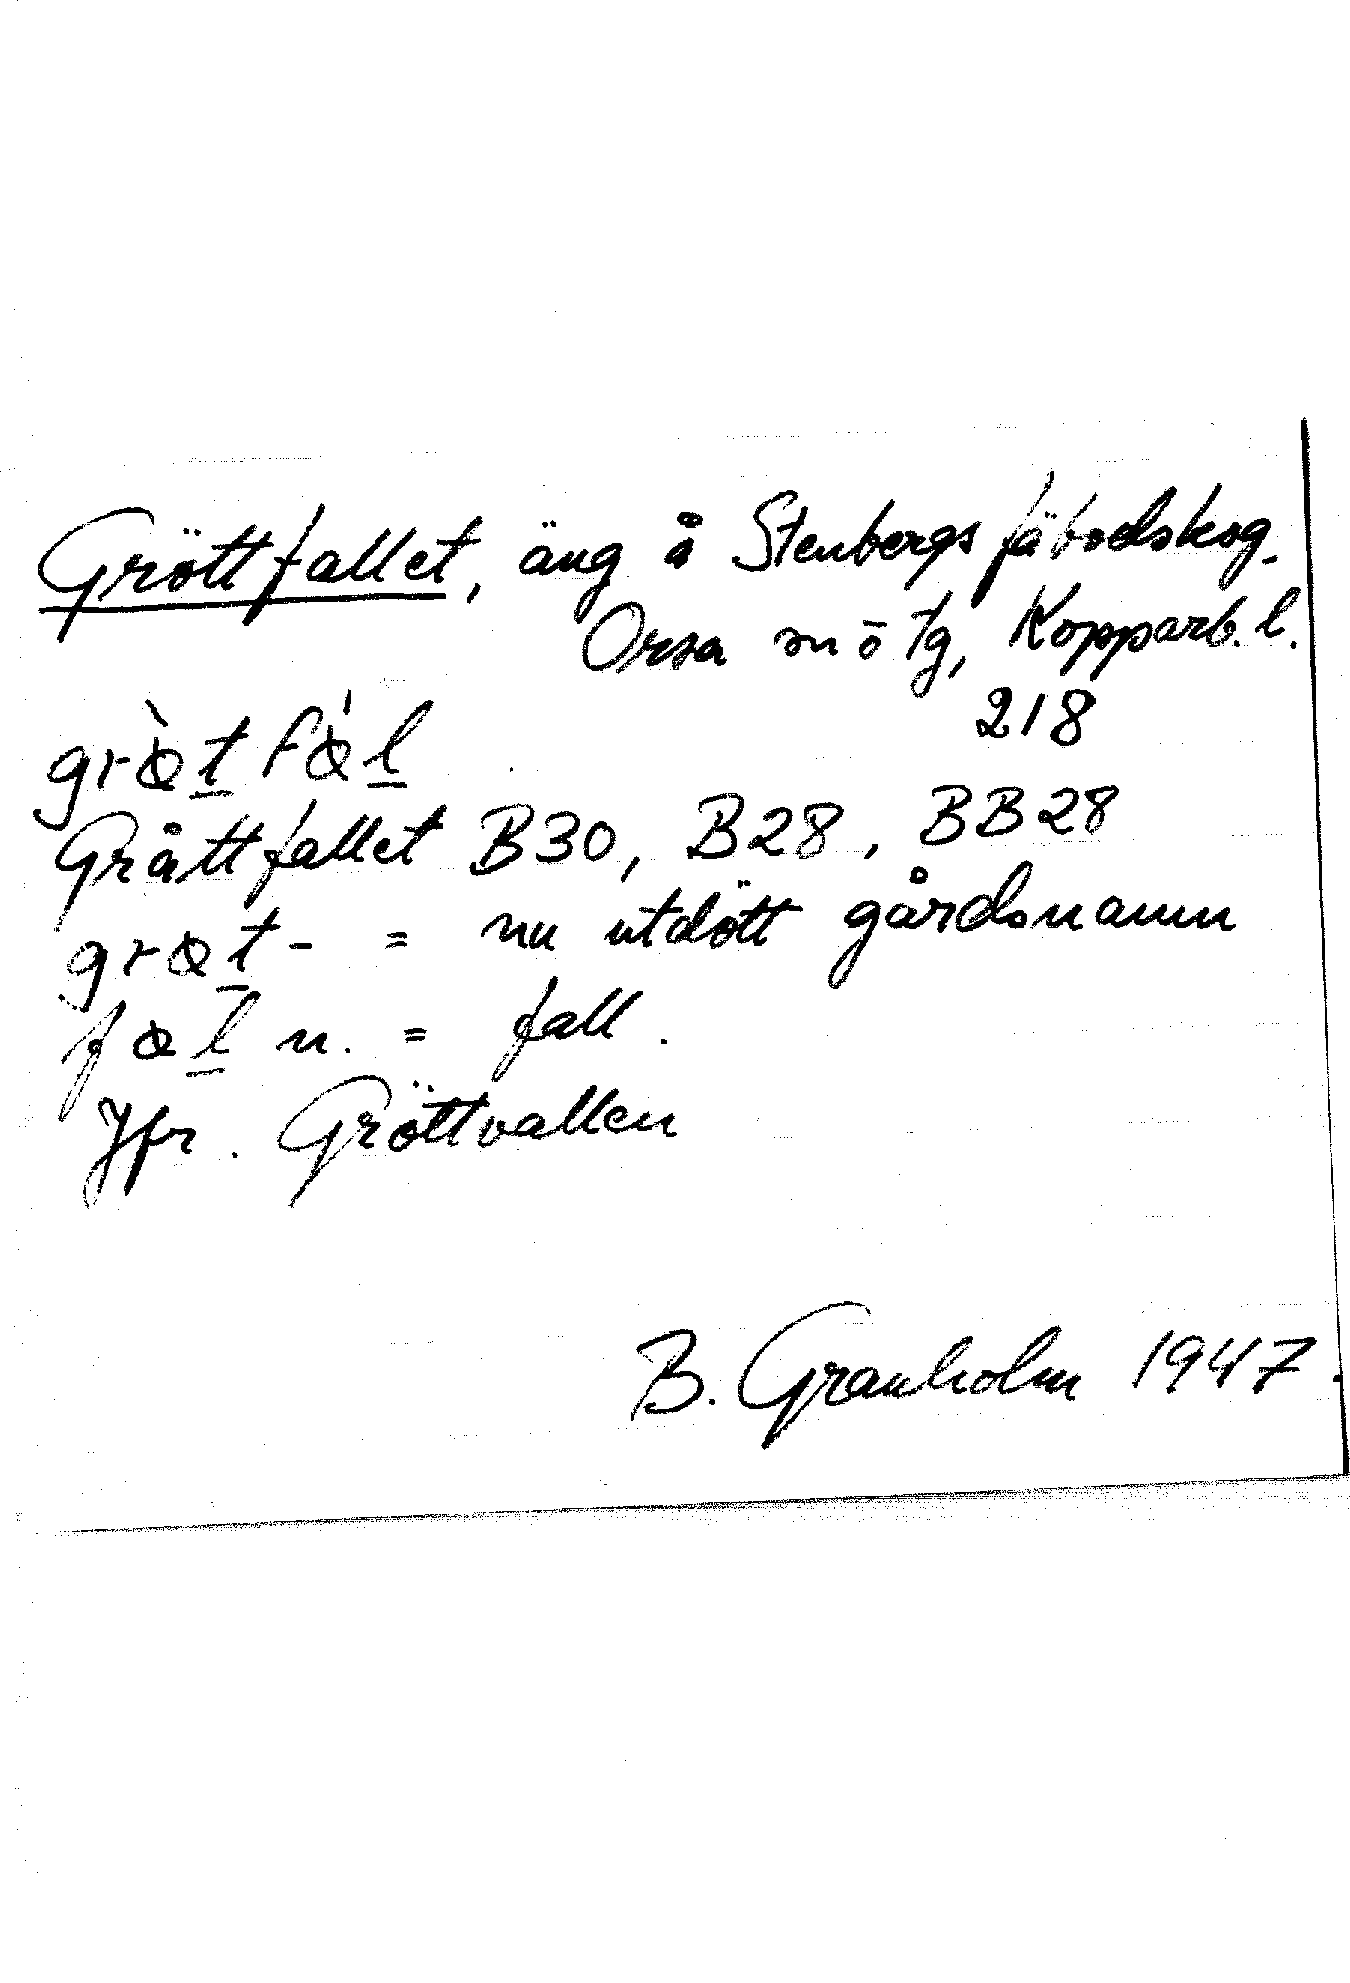 Gröttfallet, äng å Stenbergs fäbodskog.
Orsa sn ö tg, Kopparb. l.
218
Gråttfallet B30, B28, BB28
= nu utdött gårdsnamn
n. = fall.
Jfr. Gröttvallen
B. Granholm 1947.